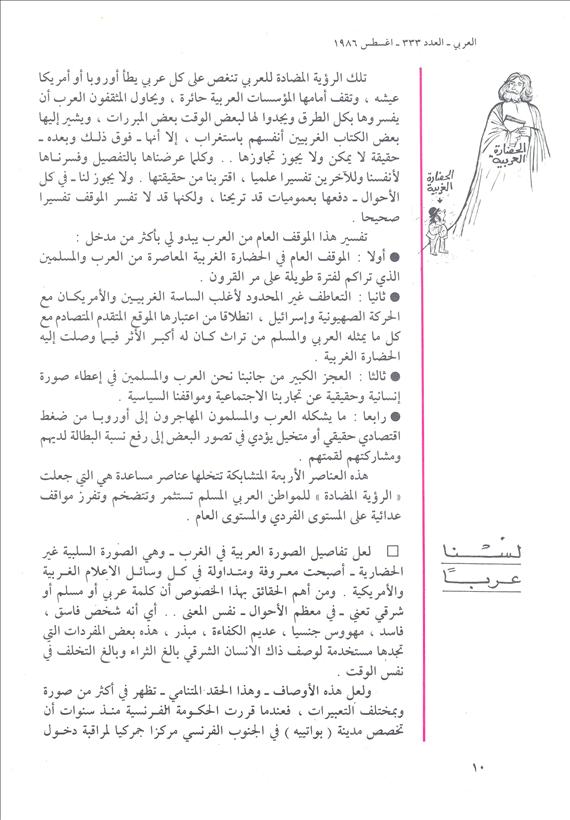 العربي ـ العدد ٣٣٣ ـ اغسطس ١٩٨٦
الحضارة
العربية
الحضارة
الغربية
تلك الرؤية المضادة للعربي تنغص على كل عربي يطأ أوروبا أو أمريكا
عيشه ، وتقف أمامها المؤسسات العربية حائرة ، ويحاول المثقفون العرب أن
يفسروها بكل الطرق ويجدوا لها لبعض الوقت بعض المبررات ، ويشير إليها
بعض الكتاب الغربيين أنفسهم باستغراب ، إلا أنها ـ فوق ذلك وبعده ـ
حقيقة لا يمكن ولا يجوز تجاوزها . . وكلما عرضناها بالتفصيل وفسرناها
لأنفسنا وللآخرين تفسيرا علميا ، اقتربنا من حقيقتها . ولا يجوز لنا ـ في كل
الأحوال ـ دفعها بعموميات قد تريحنا ، ولكنها قد لا تفسر الموقف تفسيرا
صحيحا .
تفسير هذا الموقف العام من العرب يبدو لي بأكثر من مدخل :
● أولا : الموقف العام في الحضارة الغربية المعاصرة من العرب والمسلمين
الذي تراكم لفترة طويلة على مر القرون .
● ثانيا : التعاطف غير المحدود لأغلب الساسة الغربيين والأمريكان مع
الحركة الصهيونية وإسرائيل ، انطلاقا من اعتبارها الموقع المتقدم المتصادم مع
كل ما يمثله العربي والمسلم من تراث كان له أكبر الأثر فيما وصلت إليه
الحضارة الغربية .
● ثالثا : العجز الكبير من جانبنا نحن العرب والمسلمين في إعطاء صورة
إنسانية وحقيقية عن تجاربنا الاجتماعية ومواقفنا السياسية .
● رابعا : ما يشكله العرب والمسلمون المهاجرون إلى أوروبا من ضغط
اقتصادي حقيقي أو متخيل يؤدي في تصور البعض إلى رفع نسبة البطالة لديهم
ومشاركتهم لقمتهم .
هذه العناصر الأربعة المتشابكة تتخلها عناصر مساعدة هي التي جعلت
« الرؤية المضادة » للمواطن العربي المسلم تستثمر وتتضخم وتفرز مواقف
عدائية على المستوى الفردي والمستوى العام .
لسنا
عربا
□ لعل تفاصيل الصورة العربية في الغرب ـ وهي الصورة السلبية غير
الحضارية ـ أصبحت معروفة ومتداولة في كل وسائل الاعلام الغربية
والأمريكية . ومن أهم الحقائق بهذا الخصوص أن كلمة عربي أو مسلم أو
شرقي تعني ـ في معظم الأحوال ـ نفس المعنى . . أي أنه شخص فاسق ،
فاسد ، مهووس جنسيا ، عديم الكفاءة ، مبذر ، هذه بعض المفردات التي
تجدها مستخدمة لوصف ذاك الانسان الشرقي بالغ الثراء وبالغ التخلف في
نفس الوقت .
ولعل هذه الأوصاف ـ وهذا الحقد المتنامي ـ تظهر في أكثر من صورة
وبمختلف التعبيرات ، فعندما قررت الحكومة الفرنسية منذ سنوات أن
تخصص مدينة ( بواتييه ) في الجنوب الفرنسي مركزا جمركيا لمراقبة دخول
١٠